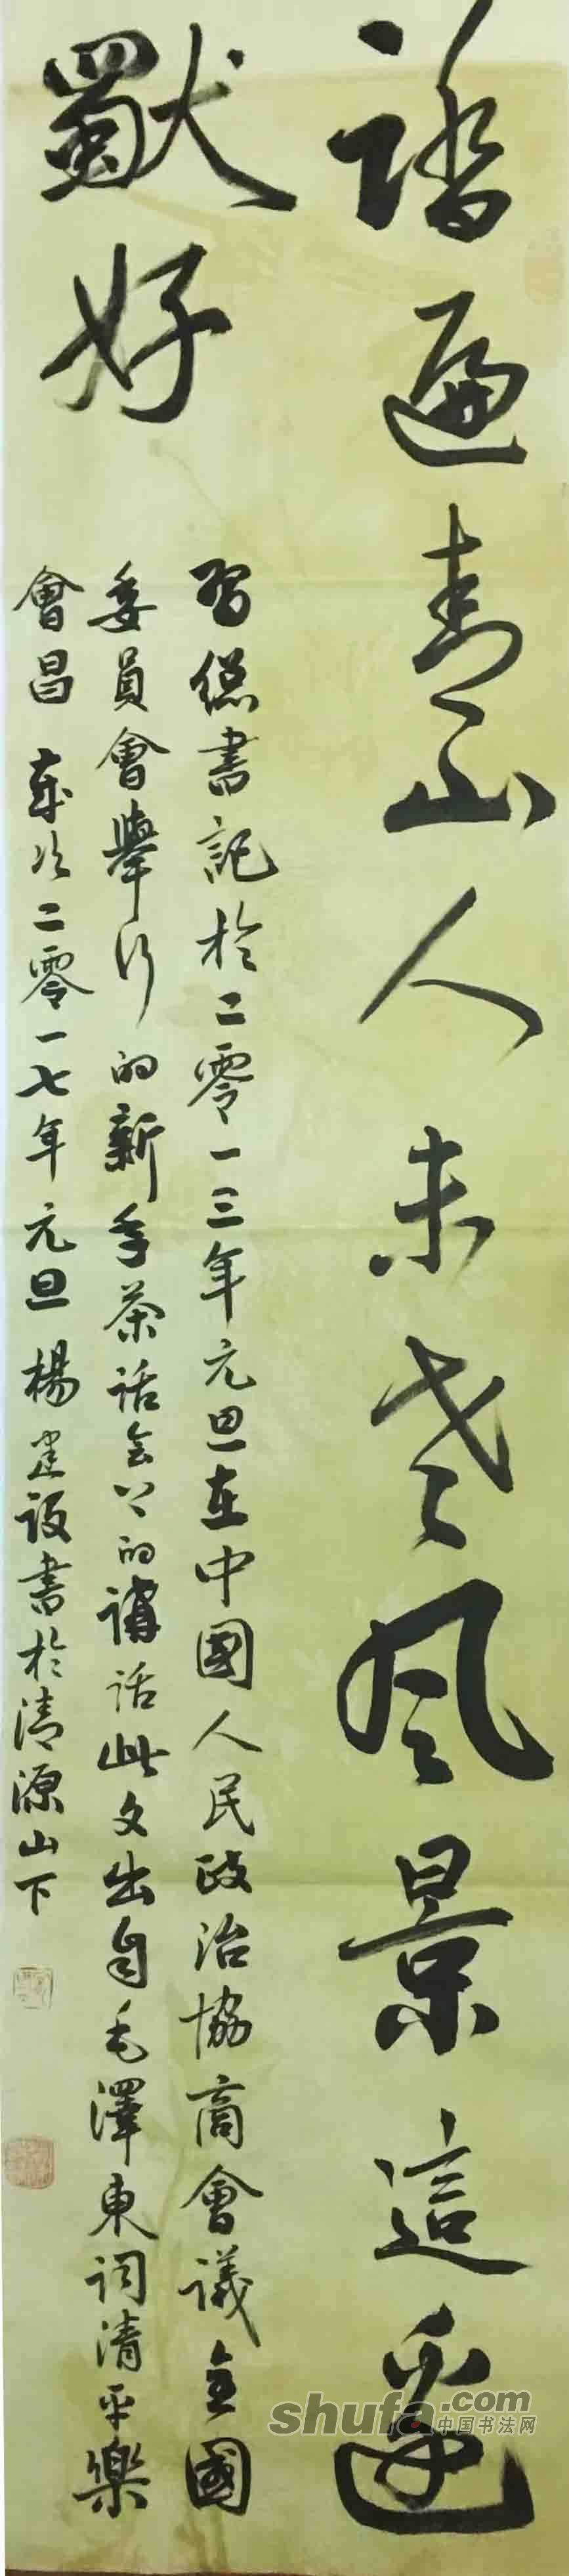 踏遍青山人未老风景這邊
獸好
習總書記於二零一三年元旦在中國人民政治協商會議全國
委員會舉行的新年茶話会上的講话此文出自毛澤東词清平樂
會昌 歲次二零一七年元旦 楊建設書於清源山下
shufa.com
中国书法网